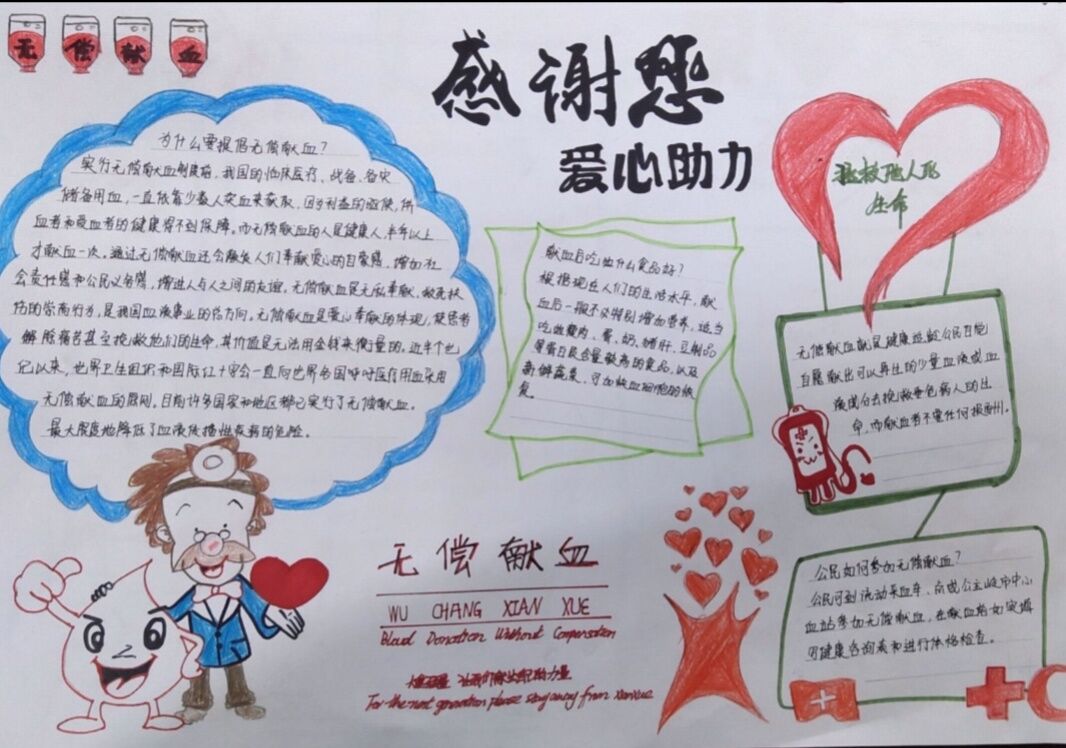 无偿献血
感谢您
爱心助力
为什么要提倡无偿献血?
实行无偿献血制度前,我国的临床医疗、战备、备灾
储备用血,一直依靠少数人卖血来获取,因为利益的驱使,供
血者和受血者的健康得不到保障。而无偿献血的人是健康人,半年以上
才献血一次。通过无偿献血还会激发人们奉献爱心的自豪感,增加社
会责任感和公民义务感,增进人与人之间的友谊。无偿献血是无私奉献,救死扶
伤的崇高行为,是我国血液事业的总方向。无偿献血是爱心奉献的体现,使患者
解除痛苦甚至挽救他们的生命,其价值是无法用金钱来衡量的。近半个世
纪以来,世界卫生组织和国际红十字会一直向世界各国呼吁医疗用血采用
无偿献血的原则。目前许多国家和地区都已实行了无偿献血。
最大限度地降低了血液传播性疾病的危险。
献血后吃些什么食品好?
根据现在人们的生活水平,献
血后一般不必特别增加营养,适当
吃些瘦肉、蛋、奶、猪肝、豆制品
等蛋白质含量较高的食品,以及
新鲜蔬菜,可加快血细胞的恢
复。
拯救他人的
生命
无偿献血就是健康适龄公民自愿
自愿献出可以再生的少量血液或血
液成分去挽救垂危病人的生
命,而献血者不需任何报酬。
公民如何参加无偿献血?
公民可到流动采血车、
血站参加无偿献血,在献血前如实填
写健康咨询表和进行体格检查。
无偿献血
WU CHANG XIAN XUE
Blood Donation Without Compensation
For the next generation please stay away from